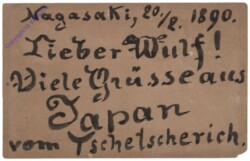 Nagasaki, 20/2. 1890.
Lieber Wulf!
Viele Grüsse aus
Japan
vom Tschetscherich.